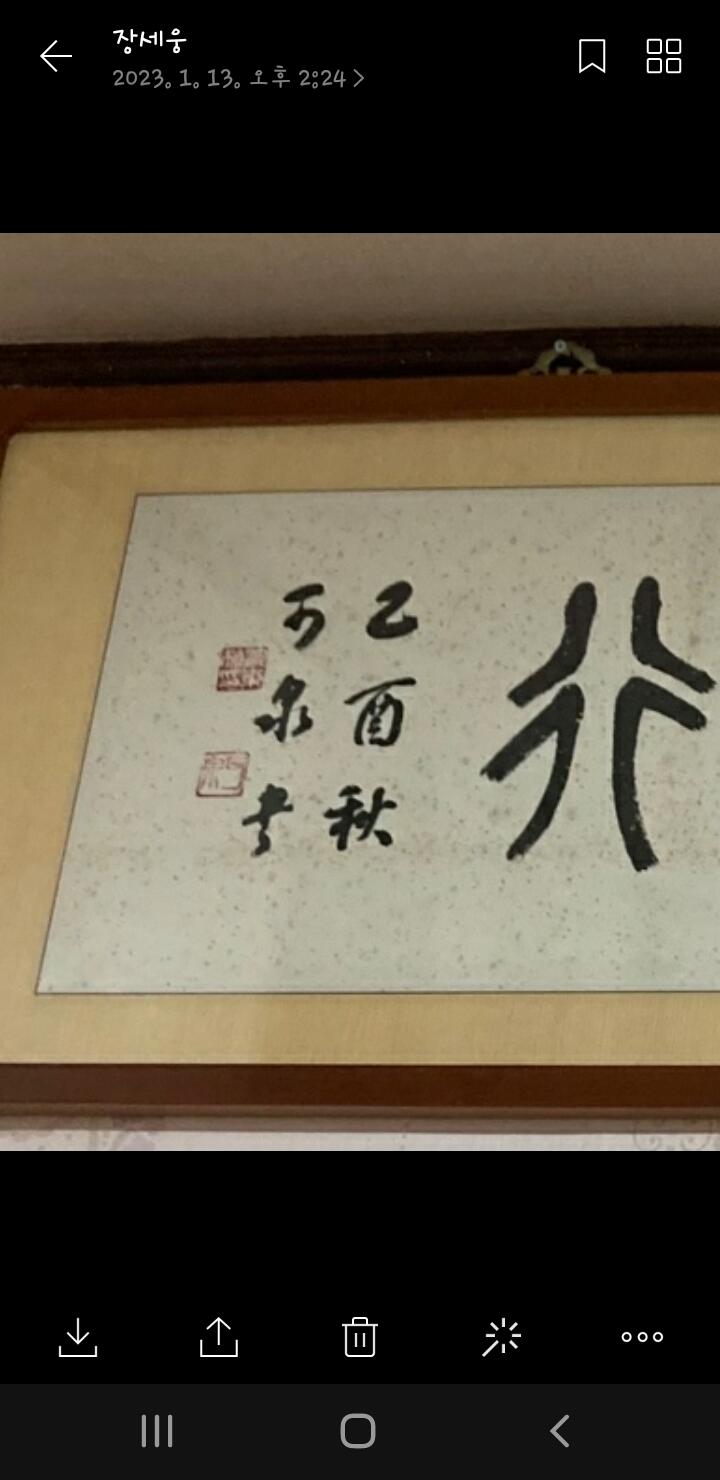 장세웅
2023. 1. 13. 오후 2:24
行
乙酉秋
可泉書